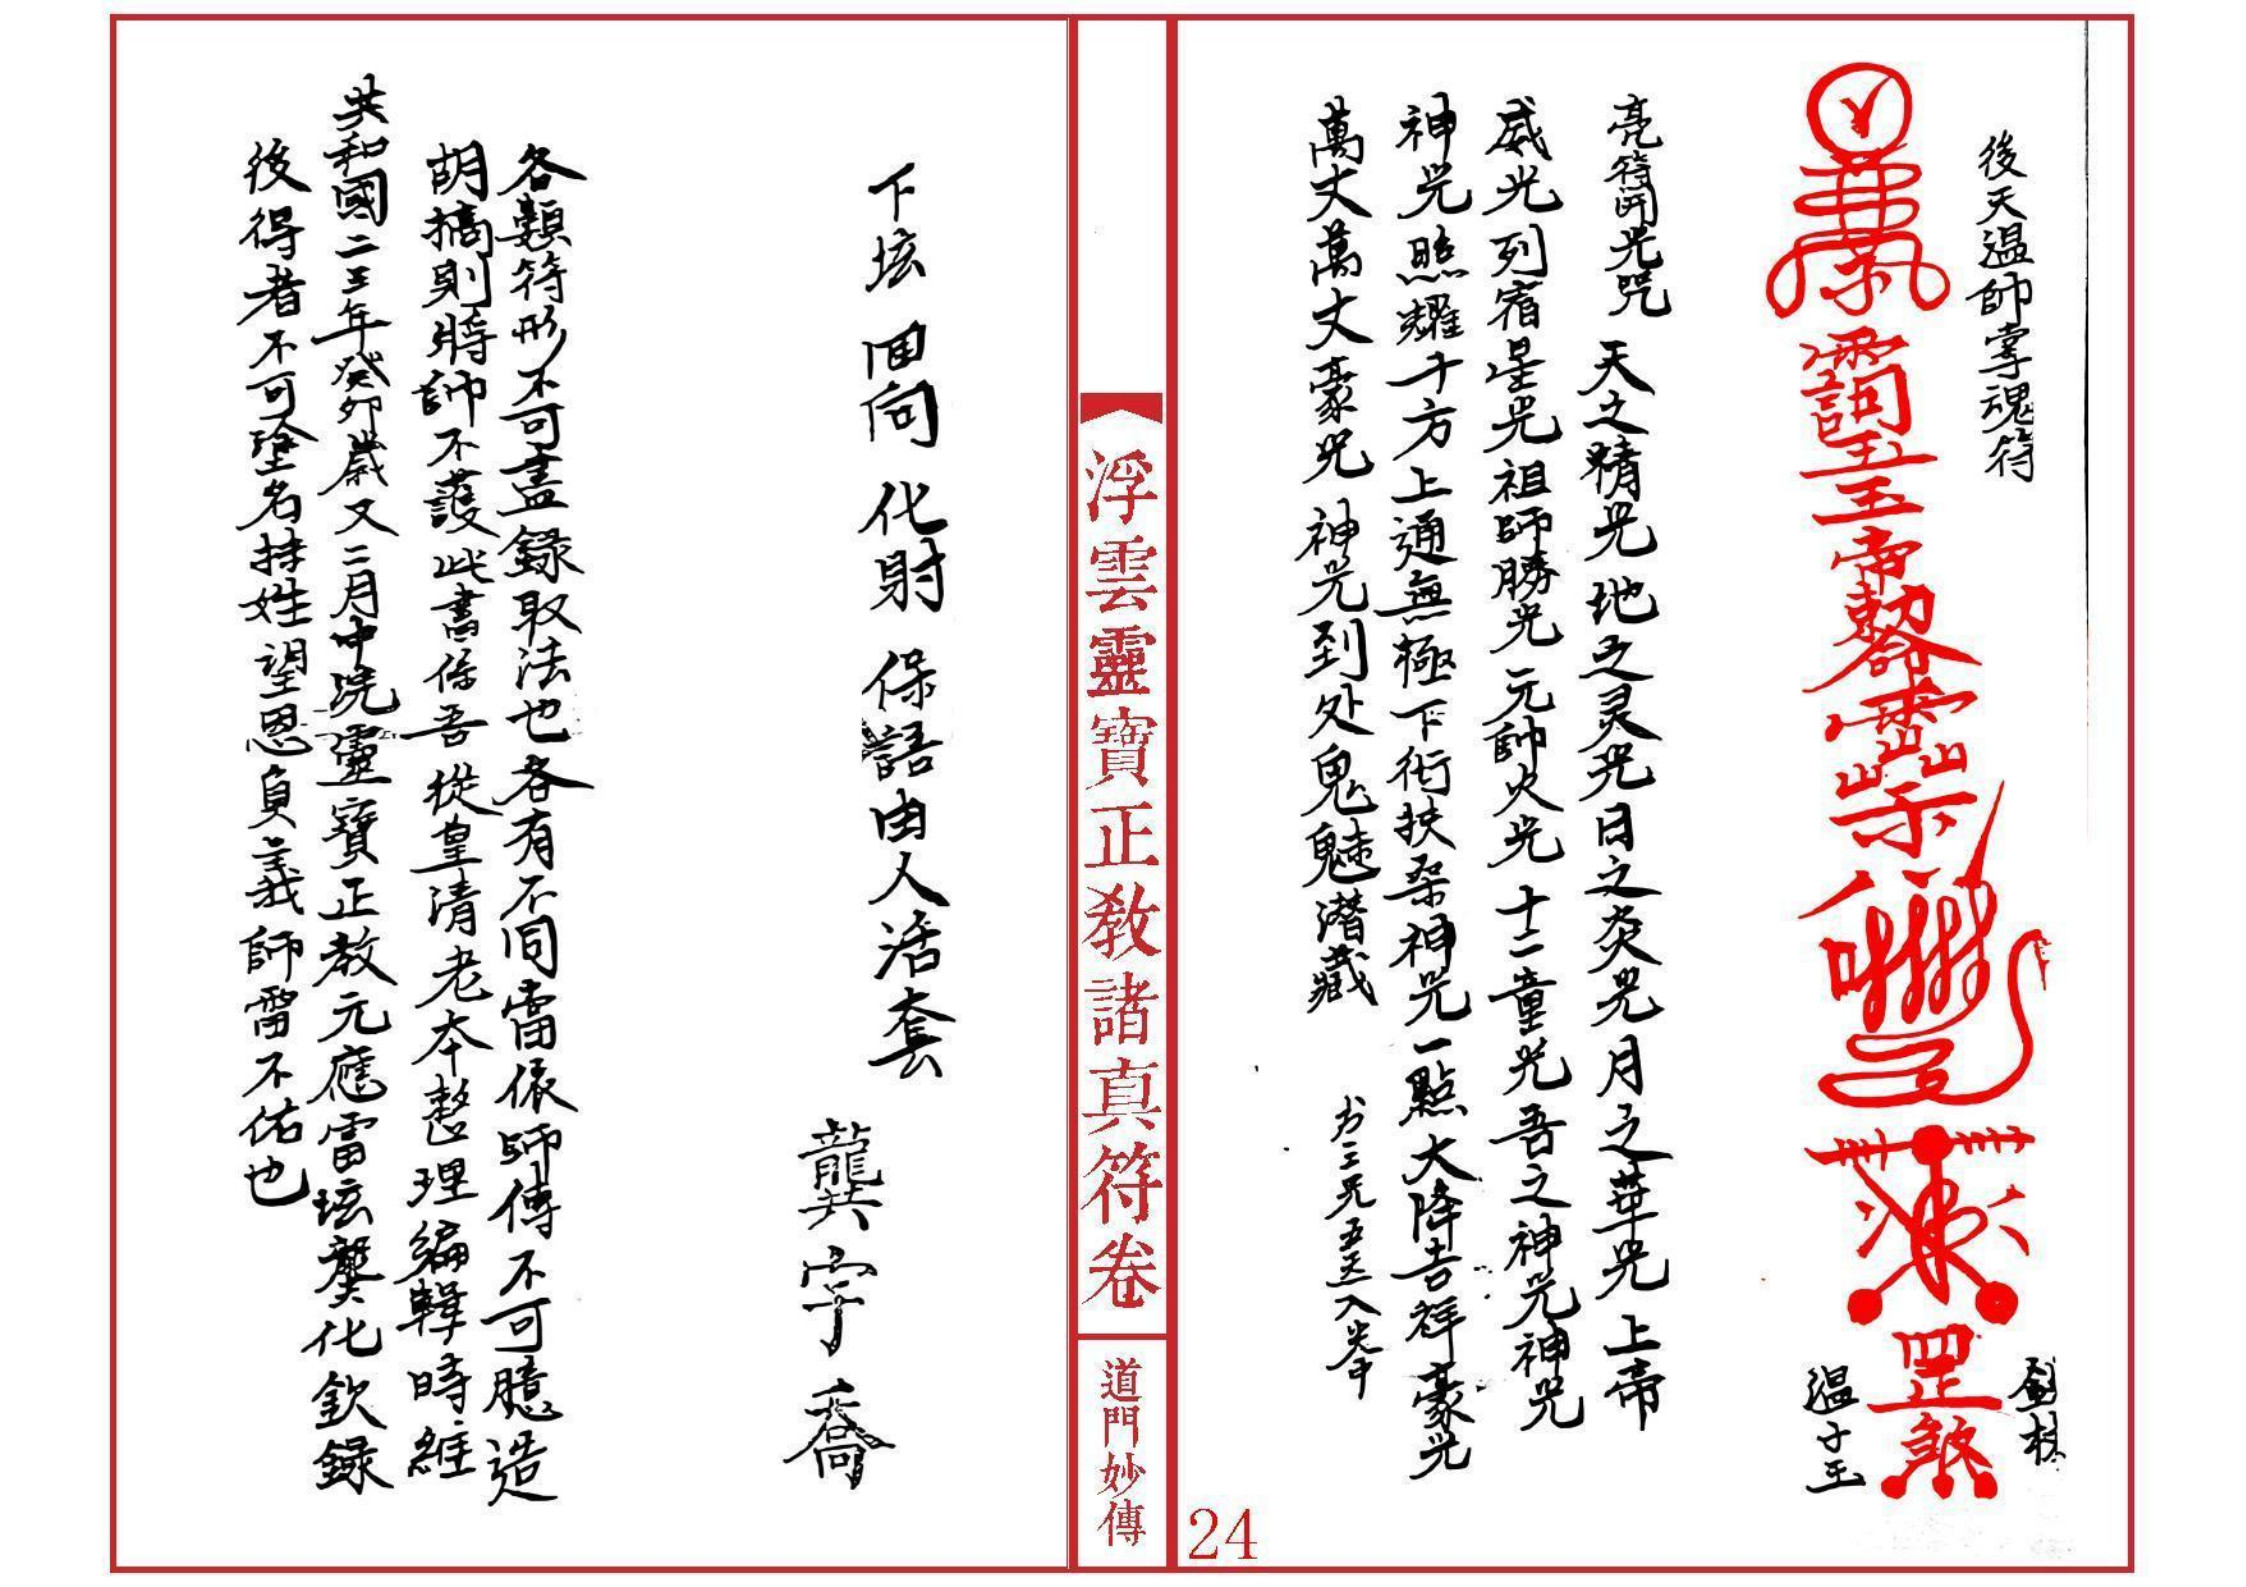 後天溫帥掌魂符
玉帝敕令
罡煞
溫子玉
亮符開光咒
天之精光地之灵光日之炎光月之華光上帝
威光列宿星光祖師勝光元帥火光十二童光吾之神光神光
神光照耀十方上通無極下衍扶桑神光一點大降吉祥豪光
萬丈萬丈豪光神光到处鬼魅潛藏
书三光五炁入米中
24
浮雲靈寶正教諸真符卷
道門妙傳
下坛 回向 化財 保語由人活套
龔字喬
各類符形不可盡錄取法也各有不同當依師傳不可臆造
胡搞則將帥不護此書係吾從皇清老本整理編輯時維
共和國二三年癸卯歲又二月中浣靈寶正教元應雷坛龔化欽錄
後得者不可塗名持姓望恩負義師雷不佑也